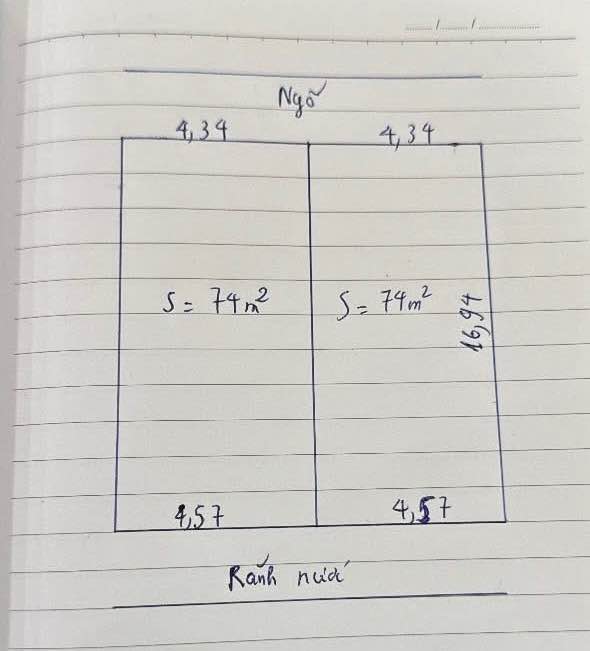 Ngõ
4,34 4,34
S = 74m² S = 74m²
16,94
4,57 4,57
Rãnh nước